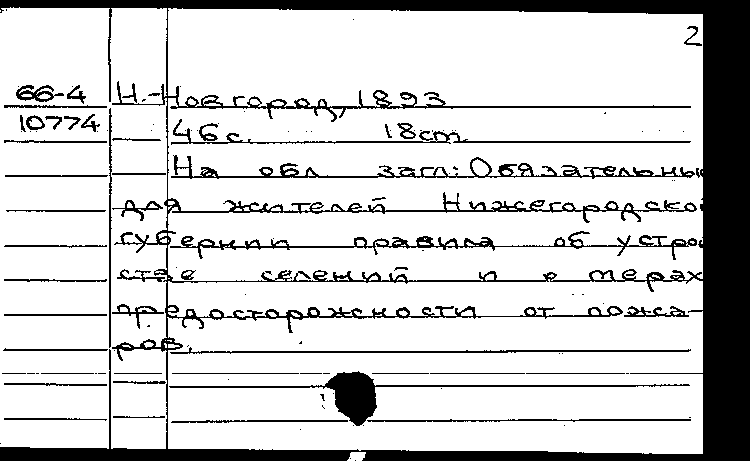 2
66-4 Н.-Новгород, 1893
10774 46с. 18см.
На обл загл: Обязательны
для жителей Нижегородской
губернии правила об устро
стве селений и о мерах
предосторожности от пожа-
ров.